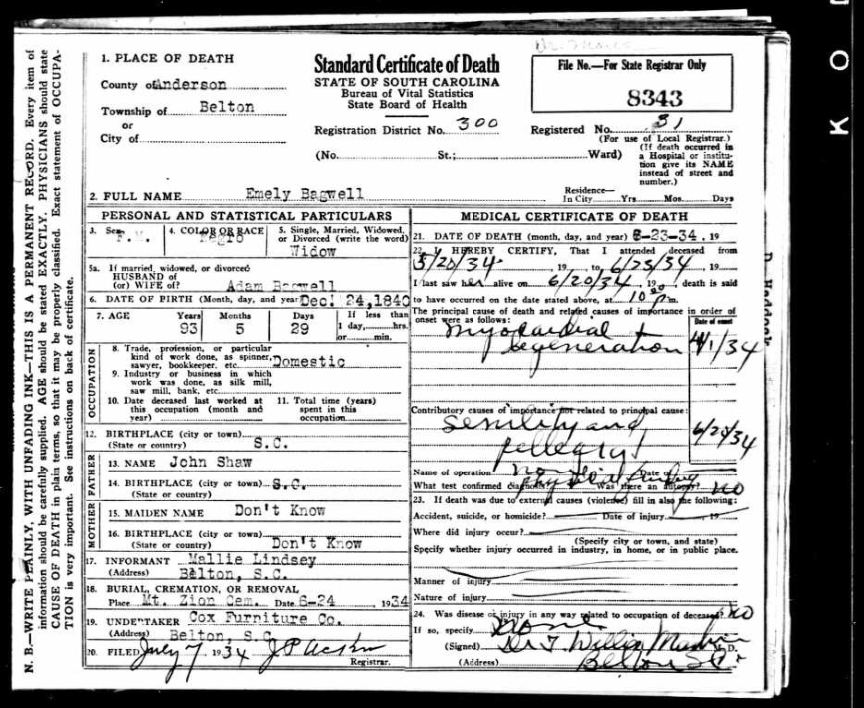 N. B.—WRITE PLAINLY, WITH UNFADING INK—THIS IS A PERMANENT RECORD. Every item of
information should be carefully supplied. AGE should be stated EXACTLY. PHYSICIANS should state
CAUSE OF DEATH in plain terms, so that it may be properly classified. Exact statement of OCCUPA-
TION is very important. See instructions on back of certificate.
1. PLACE OF DEATH
County of Anderson
Township of Belton
or
City of
Standard Certificate of Death
STATE OF SOUTH CAROLINA
Bureau of Vital Statistics
State Board of Health
Registration District No. 300
File No.—For State Registrar Only
8343
Registered No. 31
(For use of Local Registrar.)
(No. St.; Ward)
(If death occurred in
a Hospital or institu-
tion give its NAME
instead of street and
number.)
2. FULL NAME Emely Bagwell
Residence—
In City Yrs Mos. Days
PERSONAL AND STATISTICAL PARTICULARS
3. Sex F.
4. COLOR OR RACE Negro
5. Single, Married, Widowed,
or Divorced (write the word)
Widow
5a. If married, widowed, or divorced
HUSBAND of
(or) WIFE of? Adam Bagwell
6. DATE OF BIRTH (Month, day, and year) Dec. 24,1840
7. AGE Years Months Days If less than
93 5 29 1 day, hrs.
or min.
OCCUPATION
8. Trade, profession, or particular
kind of work done, as spinner,
sawyer, bookkeeper, etc. Domestic
9. Industry or business in which
work was done, as silk mill,
saw mill, bank, etc.
10. Date deceased last worked at
this occupation (month and
year)
11. Total time (years)
spent in this
occupation
12. BIRTHPLACE (city or town)
(State or country) S.C.
FATHER
13. NAME John Shaw
14. BIRTHPLACE (city or town) S.C.
(State or country)
MOTHER
15. MAIDEN NAME Don't Know
16. BIRTHPLACE (city or town)
(State or country) Don't Know
17. INFORMANT Mallie Lindsey
(Address) Belton, S.C.
18. BURIAL, CREMATION, OR REMOVAL
Place Mt. Zion Cem. Date 6-24 1934
19. UNDERTAKER Cox Furniture Co.
(Address) Belton, S.C.
20. FILED July 7, 1934 J P
Registrar.
MEDICAL CERTIFICATE OF DEATH
21. DATE OF DEATH (month, day, and year) 6-23-34, 19
22. I HEREBY CERTIFY, That I attended deceased from
5/20/34, 19 to 6/23/34, 19
I last saw her alive on 6/20/34, 19 , death is said
to have occurred on the date stated above, at 10 p m.
The principal cause of death and related causes of importance in order of
onset were as follows:
Date of onset
Myocardial
degeneration 4/1/34
Contributory causes of importance not related to principal cause:
Senility and 6/20/34
pellegra
Name of operation no Date of
What test confirmed diagnosis? Was there an autopsy? no
23. If death was due to external causes (violence) fill in also the following:
Accident, suicide, or homicide? Date of injury 19
Where did injury occur?
(Specify city or town, and state)
Specify whether injury occurred in industry, in home, or in public place.
Manner of injury
Nature of injury
24. Was disease or injury in any way related to occupation of deceased? no
If so, specify none
(Signed) M. D.
(Address) Belton S.C.
K O D